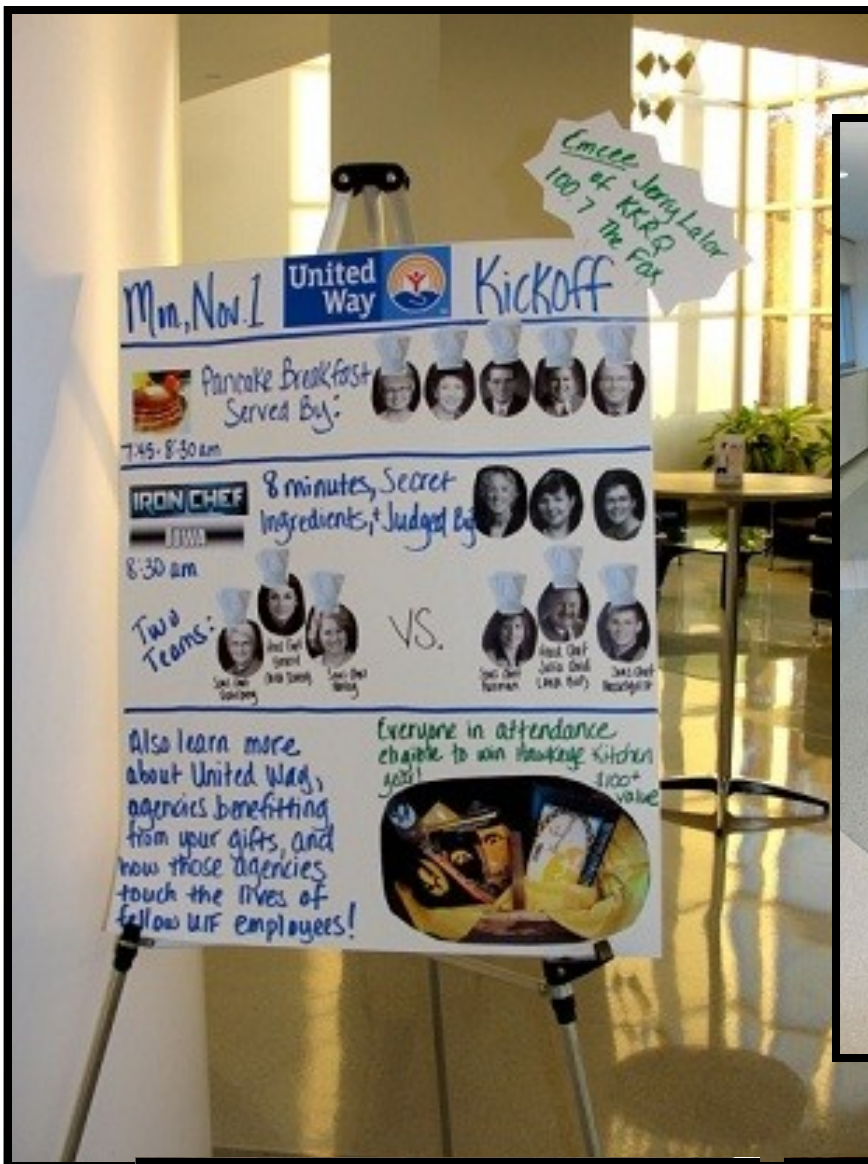 Emcee Jerry Lalor
of KKRQ
100.7 The Fox
Mon, Nov. 1
United
Way
Kickoff
Pancake Breakfast
Served By:
7:45-8:30 am
IRON CHEF
IOWA
8 minutes, Secret
Ingredients, + Judged By:
8:30 am
Two
Teams:
VS.
Sous Chef
Head Chef
Sous Chef
Sous Chef
Head Chef
Julia Child
Sous Chef
Also learn more
about United Way,
agencies benefitting
from your gifts, and
how those agencies
touch the lives of
fellow UIF employees!
Everyone in attendance
eligible to win Hawkeye Kitchen
$100+
value